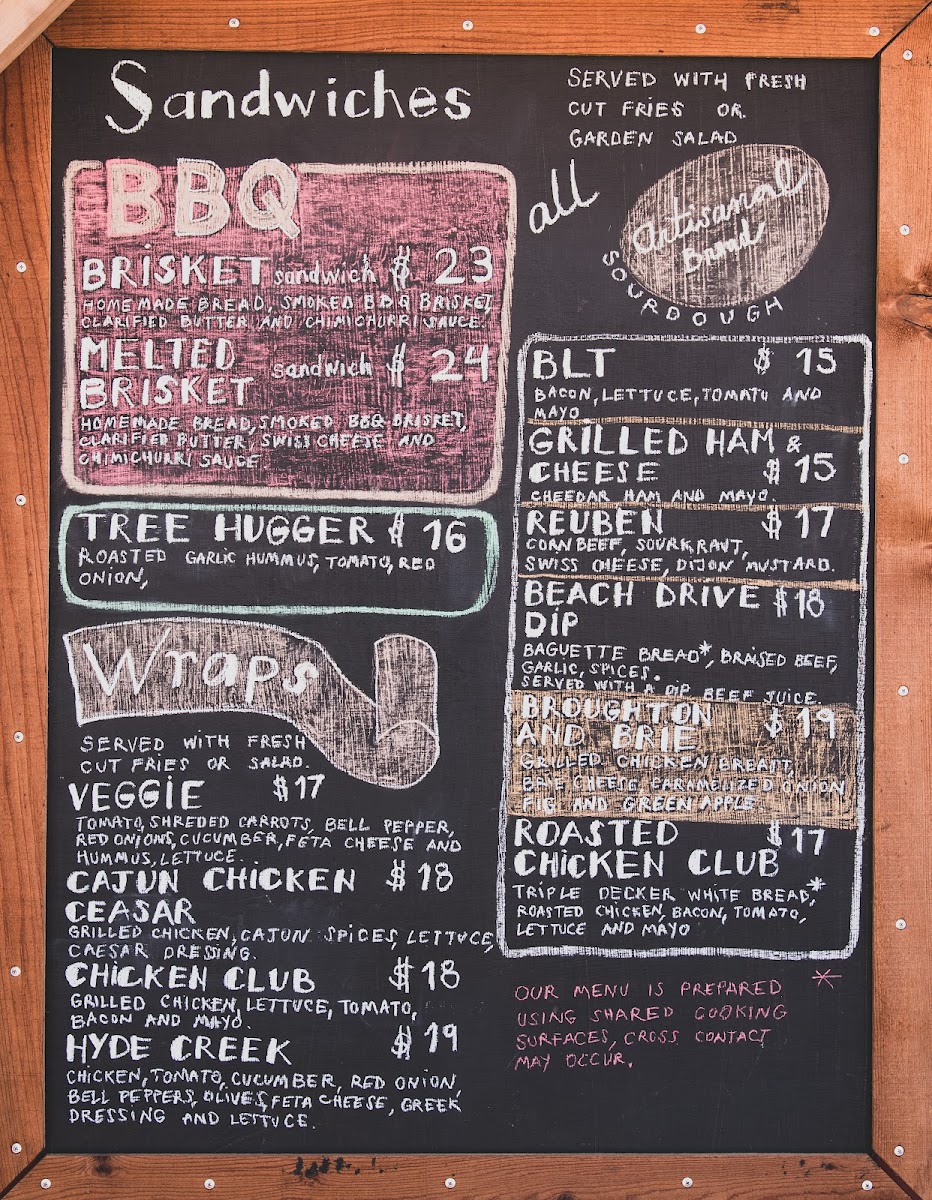 Sandwiches
SERVED WITH FRESH
CUT FRIES OR
GARDEN SALAD
all
Artisanal
Bread
SOURDOUGH
BBQ
BRISKET sandwich $ 23
HOMEMADE BREAD, SMOKED BBQ BRISKET,
CLARIFIED BUTTER AND CHIMICHURRI SAUCE.
MELTED
BRISKET sandwich $ 24
HOMEMADE BREAD, SMOKED BBQ BRISKET,
CLARIFIED BUTTER, SWISS CHEESE AND
CHIMICHURRI SAUCE
TREE HUGGER $ 16
ROASTED GARLIC HUMMUS, TOMATO, RED
ONION,
Wraps
SERVED WITH FRESH
CUT FRIES OR SALAD.
VEGGIE $17
TOMATO, SHREDED CARROTS, BELL PEPPER,
RED ONIONS, CUCUMBER, FETA CHEESE AND
HUMMUS, LETTUCE.
CAJUN CHICKEN $18
CEASAR
GRILLED CHICKEN, CAJUN SPICES, LETTUCE,
CAESAR DRESSING.
CHICKEN CLUB $18
GRILLED CHICKEN, LETTUCE, TOMATO,
BACON AND MAYO.
HYDE CREEK $19
CHICKEN, TOMATO, CUCUMBER, RED ONION,
BELL PEPPERS, OLIVES, FETA CHEESE, GREEK
DRESSING AND LETTUCE.
BLT $ 15
BACON, LETTUCE, TOMATO AND
MAYO
GRILLED HAM &
CHEESE $ 15
CHEEDAR HAM AND MAYO.
REUBEN $ 17
CORN BEEF, SOURKRAUT,
SWISS CHEESE, DIJON MUSTARD.
BEACH DRIVE $18
DIP
BAGUETTE BREAD*, BRAISED BEEF,
GARLIC, SPICES.
SERVED WITH A DIP BEEF JUICE.
BROUGHTON $ 19
AND BRIE
GRILLED CHICKEN BREAST,
BRIE CHEESE CARAMELIZED ONION
FIG AND GREEN APPLE
ROASTED $17
CHICKEN CLUB
TRIPLE DECKER WHITE BREAD,*
ROASTED CHICKEN, BACON, TOMATO,
LETTUCE AND MAYO
OUR MENU IS PREPARED *
USING SHARED COOKING
SURFACES, CROSS CONTACT
MAY OCCUR.